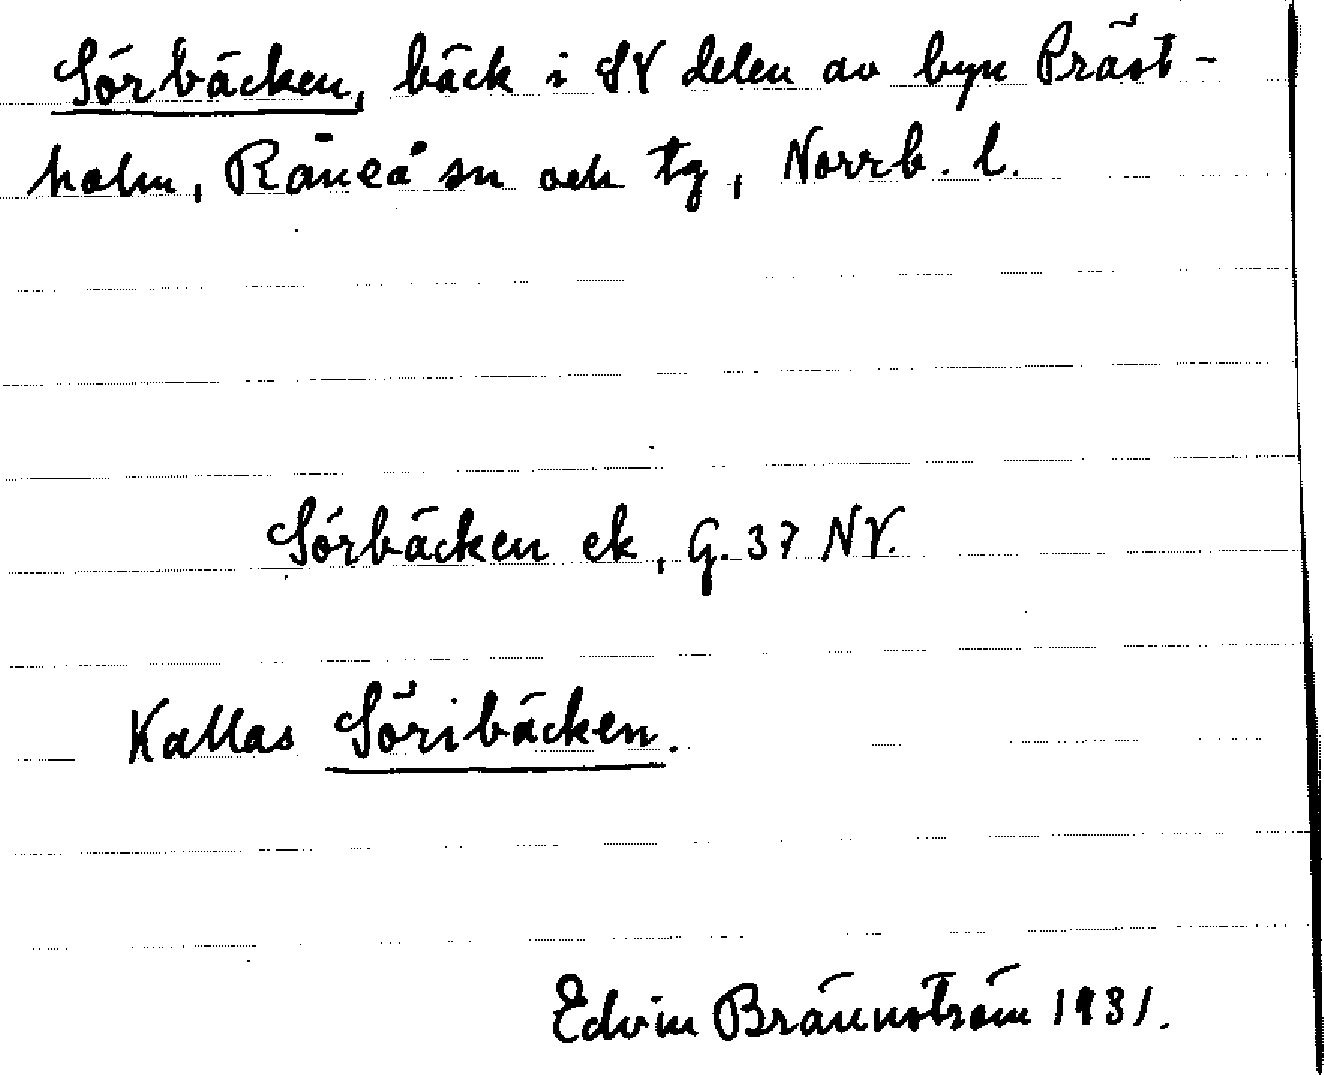 Sörbäcken, bäck i SV delen av byn Präst-
holm, Råneå sn och tg, Norrb. l.
Sörbäcken ek, G. 37 NV.
Kallas Söribäcken.
Edvin Brännström 1931.